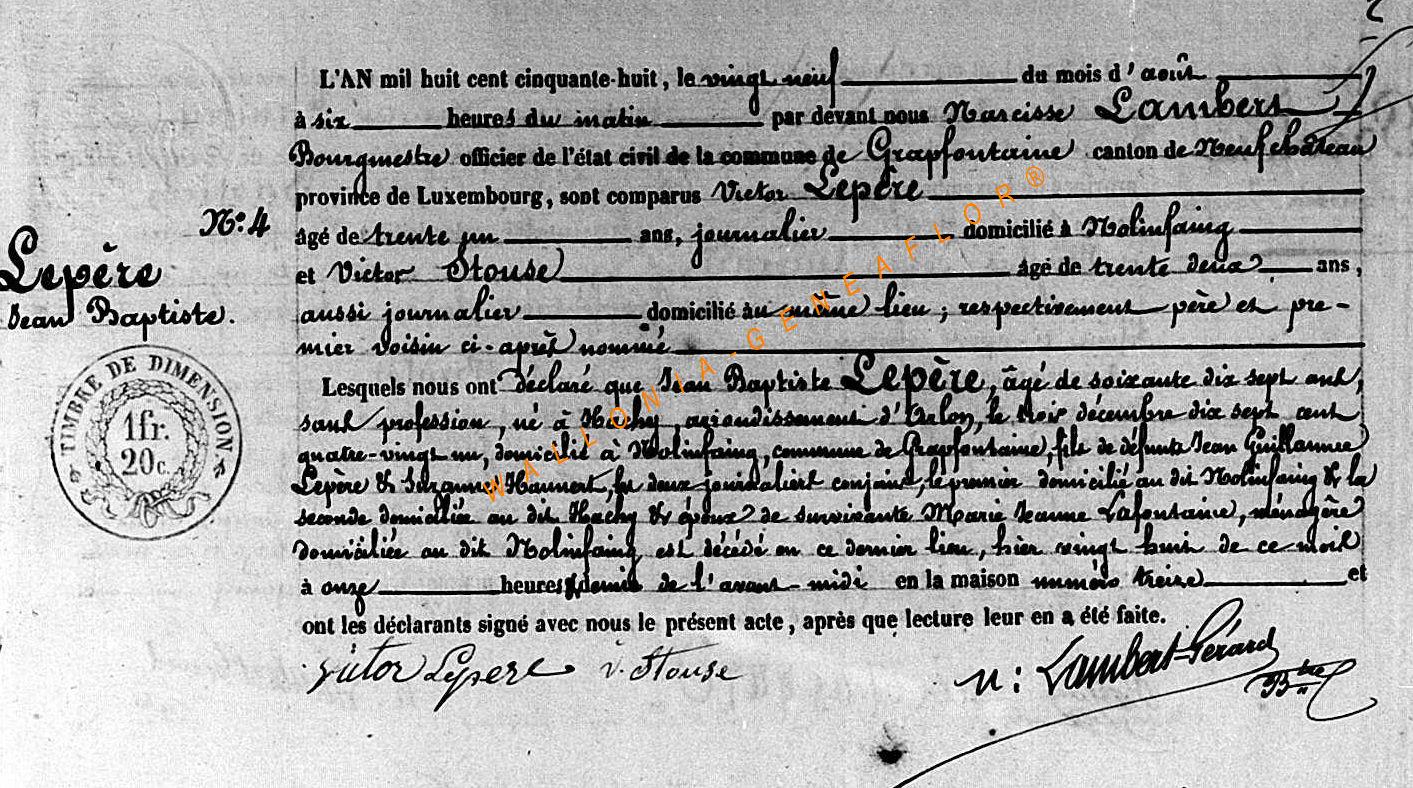 L'AN mil huit cent cinquante-huit, le vingt neuf du mois d'août
à six heures du matin par devant nous Narcisse Lambert
Bourgmestre officier de l'état civil de la commune de Grapfontaine canton de Neufchâteau
province de Luxembourg, sont comparus Victor Lepère
N°: 4
âgé de trente un ans, journalier domicilié à Nolinfaing
Lepère
Jean Baptiste.
et Victor Stouse âgé de trente deux ans,
aussi journalier domicilié au même lieu ; respectivement père et pre-
mier voisin ci-après nommé
TIMBRE DE DIMENSION
1 fr.
20 c.
Lesquels nous ont déclaré que Jean Baptiste Lepère, âgé de soixante dix sept ans,
sans profession, né à Hachy, arrondissement d'Arlon, le trois décembre dix sept cent
quatre-vingt un, domicilié à Nolinfaing, commune de Grapfontaine, fils de défunts Jean Guillaume
Lepère & Suzanne Haunert, fu deux journaliers conjoints, le premier domicilié au dit Nolinfaing & la
seconde domiciliée au dit Hachy & époux de survivante Marie Jeanne Lafontaine, ménagère
domiciliée au dit Nolinfaing est décédé en ce dernier lieu, hier vingt huit de ce mois
à onze heures & demie de l'avant-midi en la maison numéro treize et
ont les déclarants signé avec nous le présent acte, après que lecture leur en a été faite.
Victor Lepere V. Stouse
N: Lambert-Gérard
WALLONIA-GENEAFLOR®